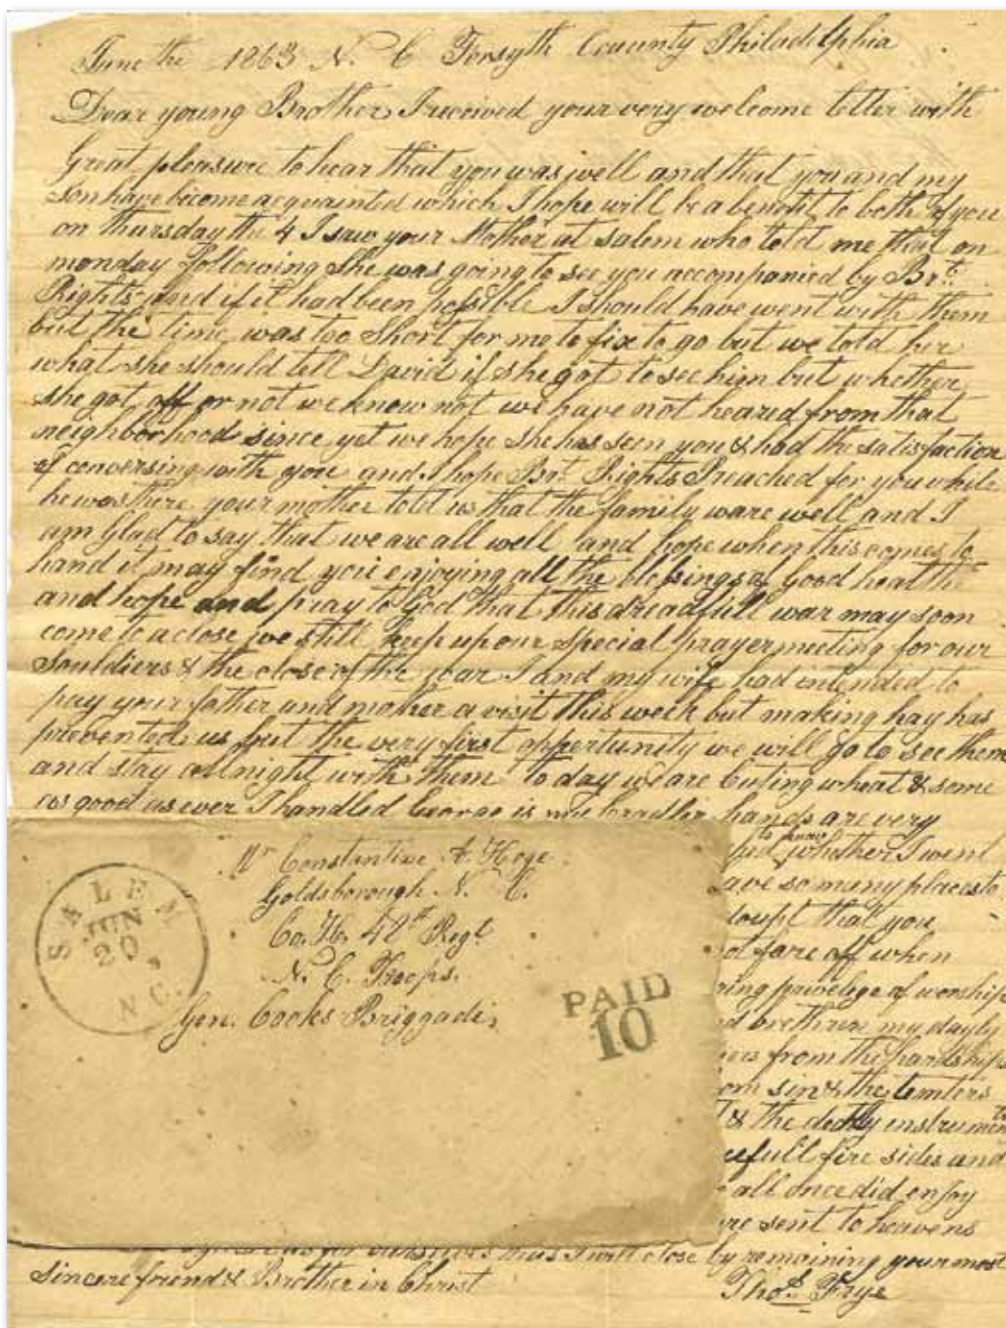 June the 1863 N. C Forsyth Couunty Philadelphia
Dear young Brother I received your very welcome letter with
Great pleasure to hear that you was well and that you and my
son have become acquainted which I hope will be a benefit to both of you
on thursday the 4 I saw your Mother at Salem who told me that on
monday following She was going to see you accompanied by Brt.
Rights and if it had been possible I should have went with them
but the time was too Short for me to fix to go but we told her
what she should tell David if she got to see him but whether
she got off or not we know not we have not heared from that
neighborhood since yet we hope She has seen you & had the satisfaction
of conversing with you and I hope Brt. Rights Preached for you while
he was there your mother told us that the family ware well and I
am Glad to say that we are all well and hope when this comes to
hand it may find you enjoying all the blessings of Good health
and hope and pray to God that this dreadfull war may soon
come to a close we still keep up our special prayer meeting for our
Souldiers & the close of the war I and my wife had intended to
pay your father and mother a visit this week but making hay has
prevented us but the very first oppertunity we will go to see them
and stay all night with them to day we are Cuting wheat & some
as good as ever I handled George is my Cradler hands are very
to know
whether I went
so many places to
doupt that you
fare off when
privelege of worship
brethren my dayly
from the hardships
from sin & the temters
& the deathly instruments
full fire sides and
all once did enjoy
are sent to heavens
for ourselves thus I will close by remaining your most
Sincere friend & Brother in Christ
Thos. Frye
Mr Constantine A. Hege
Goldsborough N. C.
Co. H. 48th Regt
N. C. Troops.
Gen. Cooks Briggade,
SALEM
JUN
20
N.C.
PAID
10